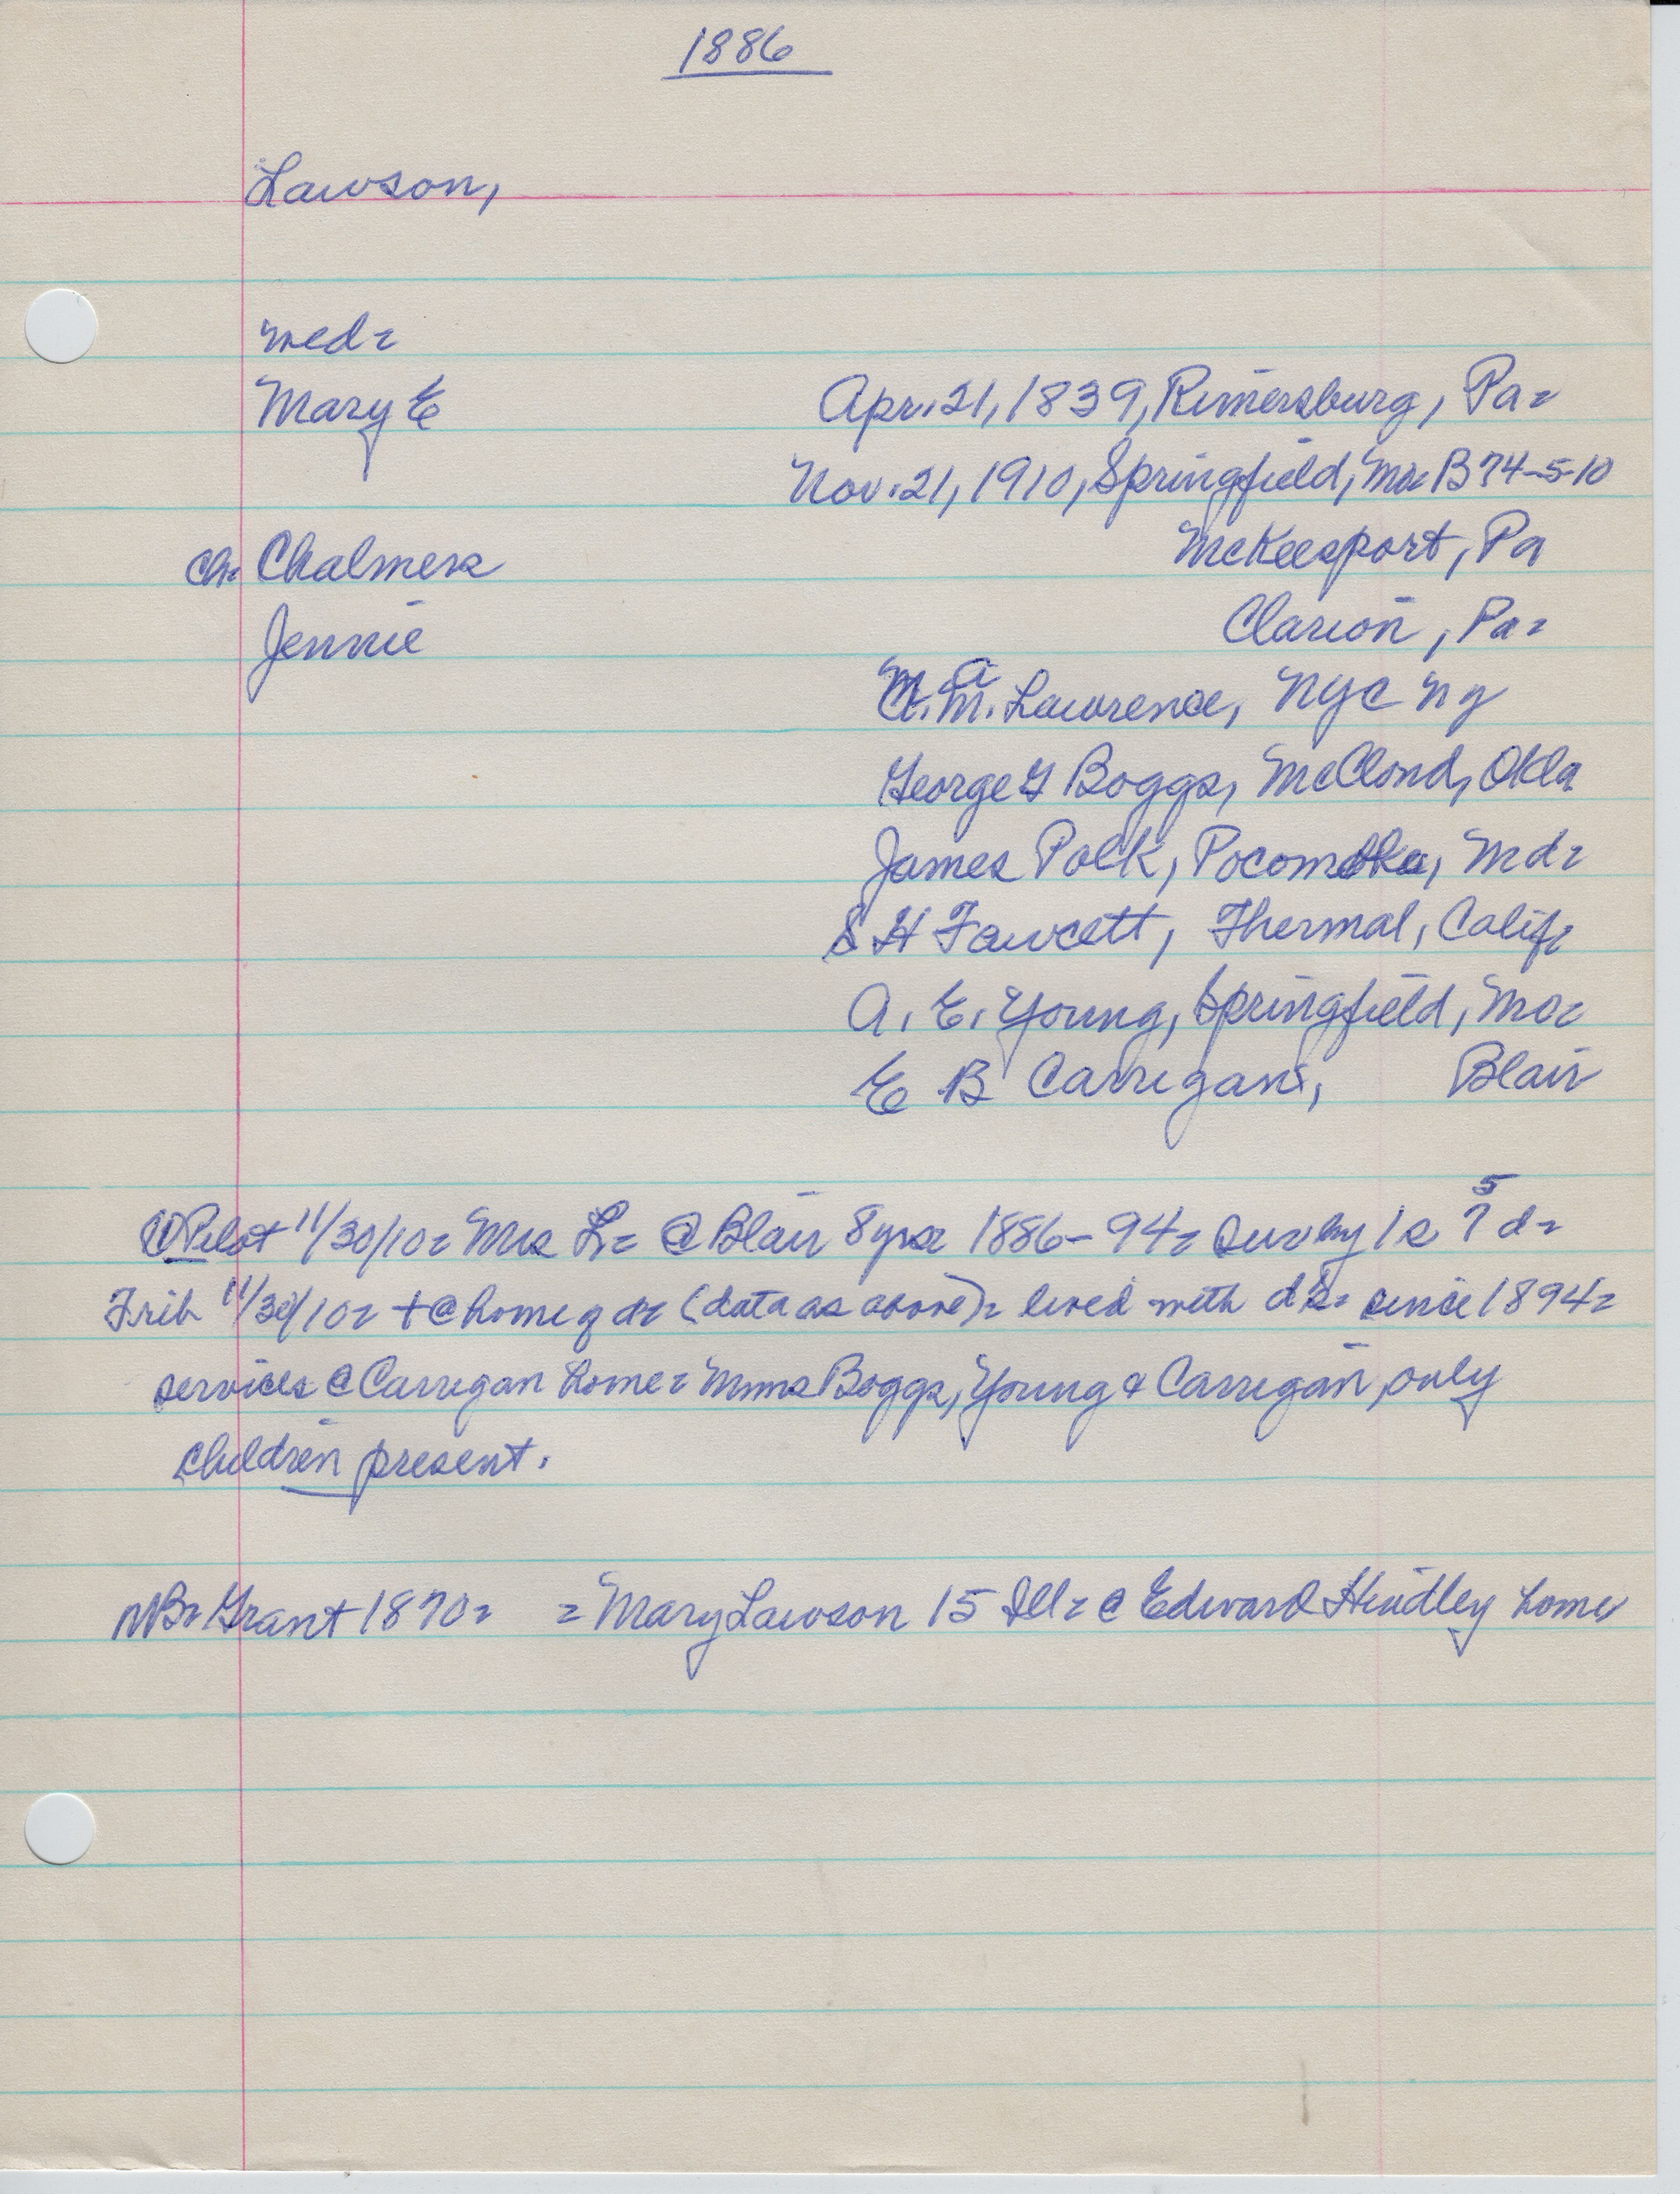 1886
Lawson,
med.
Mary E Apr. 21, 1839, Rimersburg, Pa.
Nov. 21, 1910, Springfield, Mo. B 74-5-10
Ch. Chalmers McKeesport, Pa
Jennie Clarion, Pa.
M. A. Lawrence, NYC NY
George G Boggs, McClond, Okla
James Polk, Pocomoke, Md.
S H Fawcett, Thermal, Calif.
A. E. Young, Springfield, Mo.
E B Carrigan, Blair
Pilot 11/30/10. Mrs L. @ Blair 8 yrs. 1886-94. Sur by 1 s 5 d.
Trib 11/30/10. + @ home of d. (data as above). lived with d. since 1894.
services @ Carrigan home. Mmes Boggs, Young & Carrigan, only
children present.
NB. Grant 1870. = Mary Lawson 15 Ill. @ Edward Hindley home